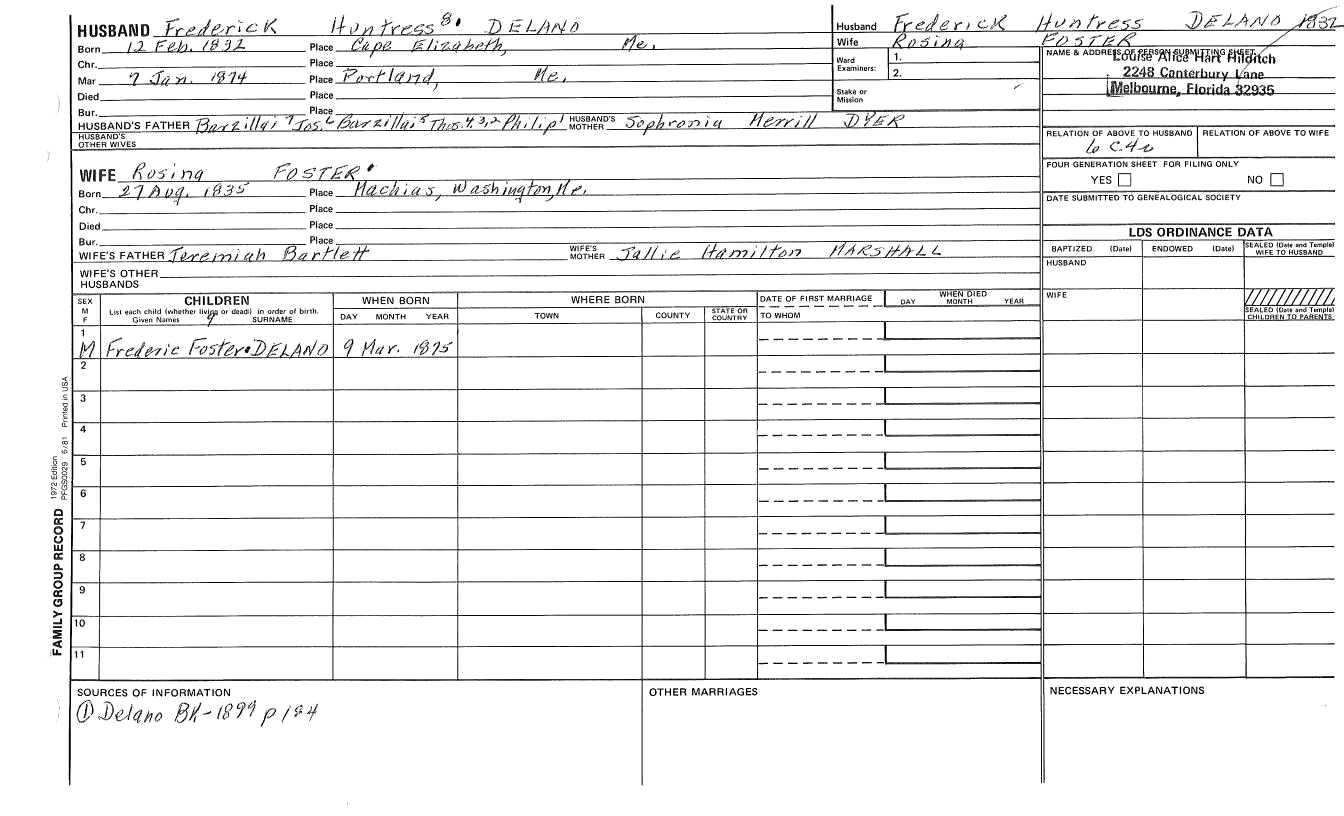 HUSBAND Frederick Huntress 8. DELANO
Born 12 Feb. 1832 Place Cape Elizabeth, Me.
Chr. Place
Mar 7 Jan. 1874 Place Portland, Me.
Died Place
Bur. Place
HUSBAND'S FATHER Barzillai 7 Jos. 6 Barzillai 5 Thos. 4,3,2 Philip 1 HUSBAND'S MOTHER Sophronia Merrill DYER
HUSBAND'S OTHER WIVES
Husband Frederick Huntress DELANO 1832
Wife Rosina FOSTER
Ward Examiners: 1.
2.
Stake or Mission
NAME & ADDRESS OF PERSON SUBMITTING SHEET
Louise Alice Hart Hilditch
2248 Canterbury Lane
Melbourne, Florida 32935
RELATION OF ABOVE TO HUSBAND RELATION OF ABOVE TO WIFE
6 C. 4 r
FOUR GENERATION SHEET FOR FILING ONLY
YES NO
DATE SUBMITTED TO GENEALOGICAL SOCIETY
WIFE Rosina FOSTER
Born 27 Aug. 1835 Place Machias, Washington, Me.
Chr. Place
Died Place
Bur. Place
WIFE'S FATHER Jeremiah Bartlett WIFE'S MOTHER Sallie Hamilton MARSHALL
WIFE'S OTHER HUSBANDS
LDS ORDINANCE DATA
BAPTIZED (Date) ENDOWED (Date) SEALED (Date and Temple) WIFE TO HUSBAND
HUSBAND
WIFE
SEALED (Date and Temple) CHILDREN TO PARENTS
SEX M F CHILDREN WHEN BORN WHERE BORN DATE OF FIRST MARRIAGE WHEN DIED
List each child (whether living or dead) in order of birth. DAY MONTH YEAR TOWN COUNTY STATE OR COUNTRY TO WHOM DAY MONTH YEAR
Given Names 9 SURNAME
1
M Frederic Foster DELANO 9 Mar. 1875
2
3
4
5
6
7
8
9
10
11
FAMILY GROUP RECORD 1972 Edition PFGS0029 6/81 Printed in USA
SOURCES OF INFORMATION OTHER MARRIAGES NECESSARY EXPLANATIONS
① Delano BK-1899 p 184